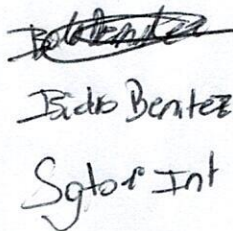 Isidro Benitez
Sgtor Int